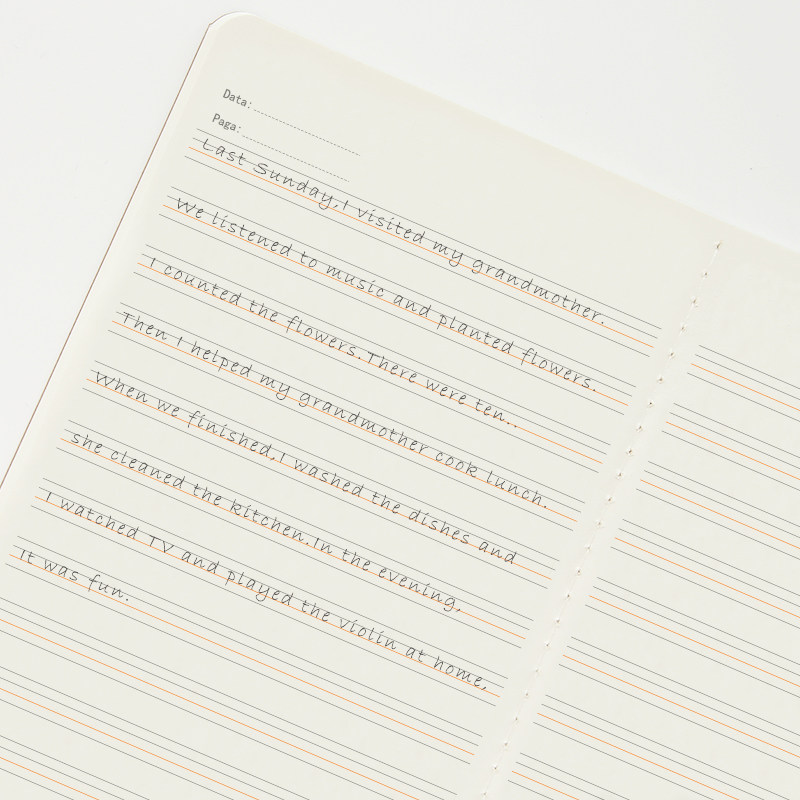 Data:
Paga:
Last Sunday, I visited my grandmother.
We listened to music and planted flowers.
I counted the flowers. There were ten..
Then I helped my grandmother cook lunch.
When we finished, I washed the dishes and
she cleaned the kitchen. In the evening,
I watched TV and played the violin at home,
It was fun.